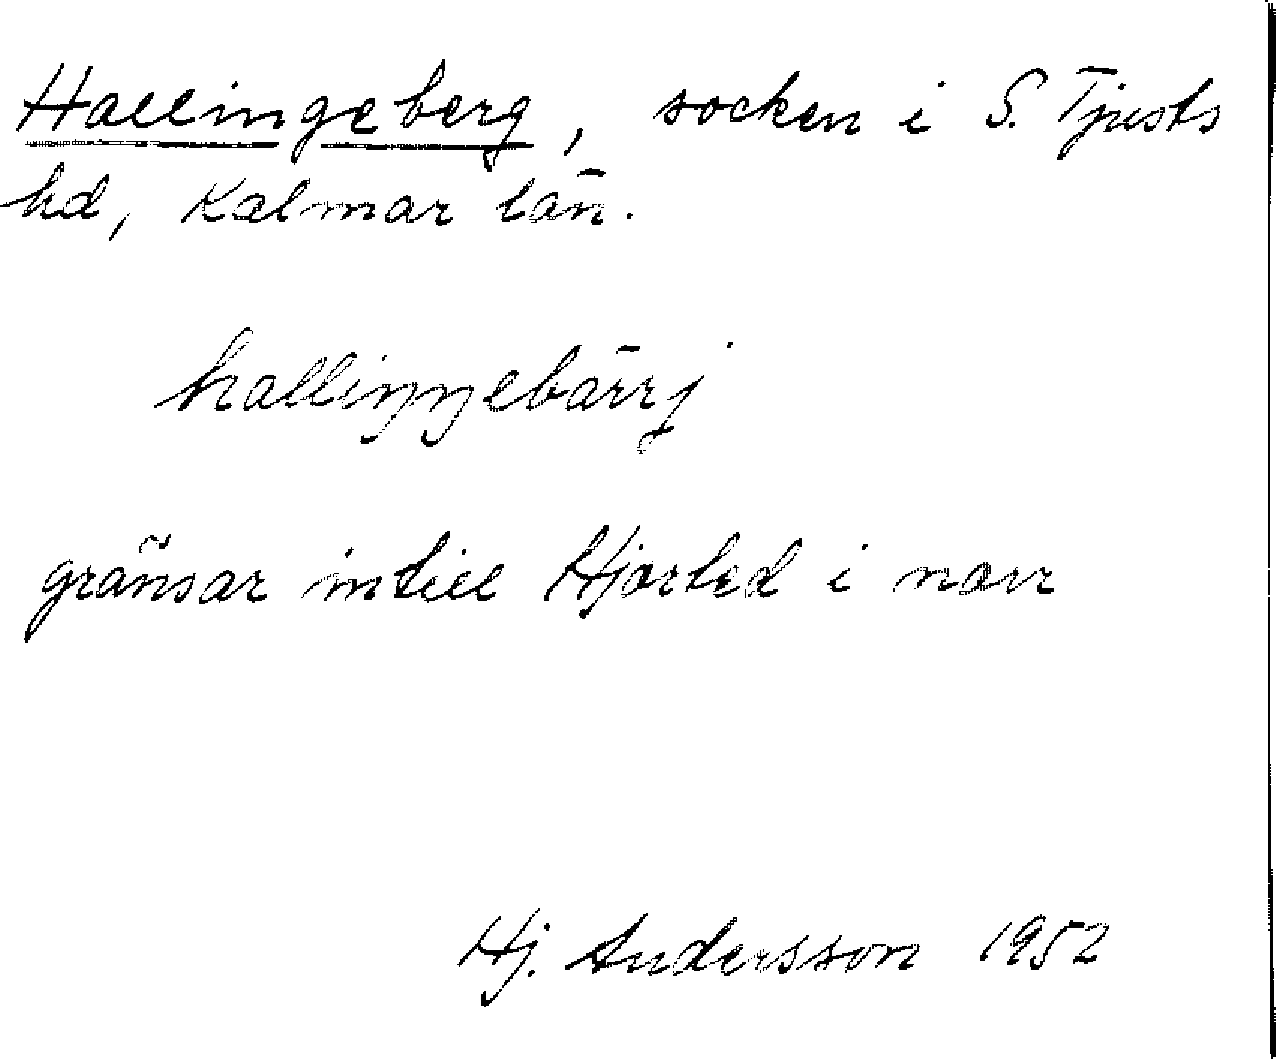 Hallingeberg, socken i S. Tjusts
hd, Kalmar län.
halliŋŋebärrj
gränsar intill Hjorted i norr
Hj. Andersson 1952